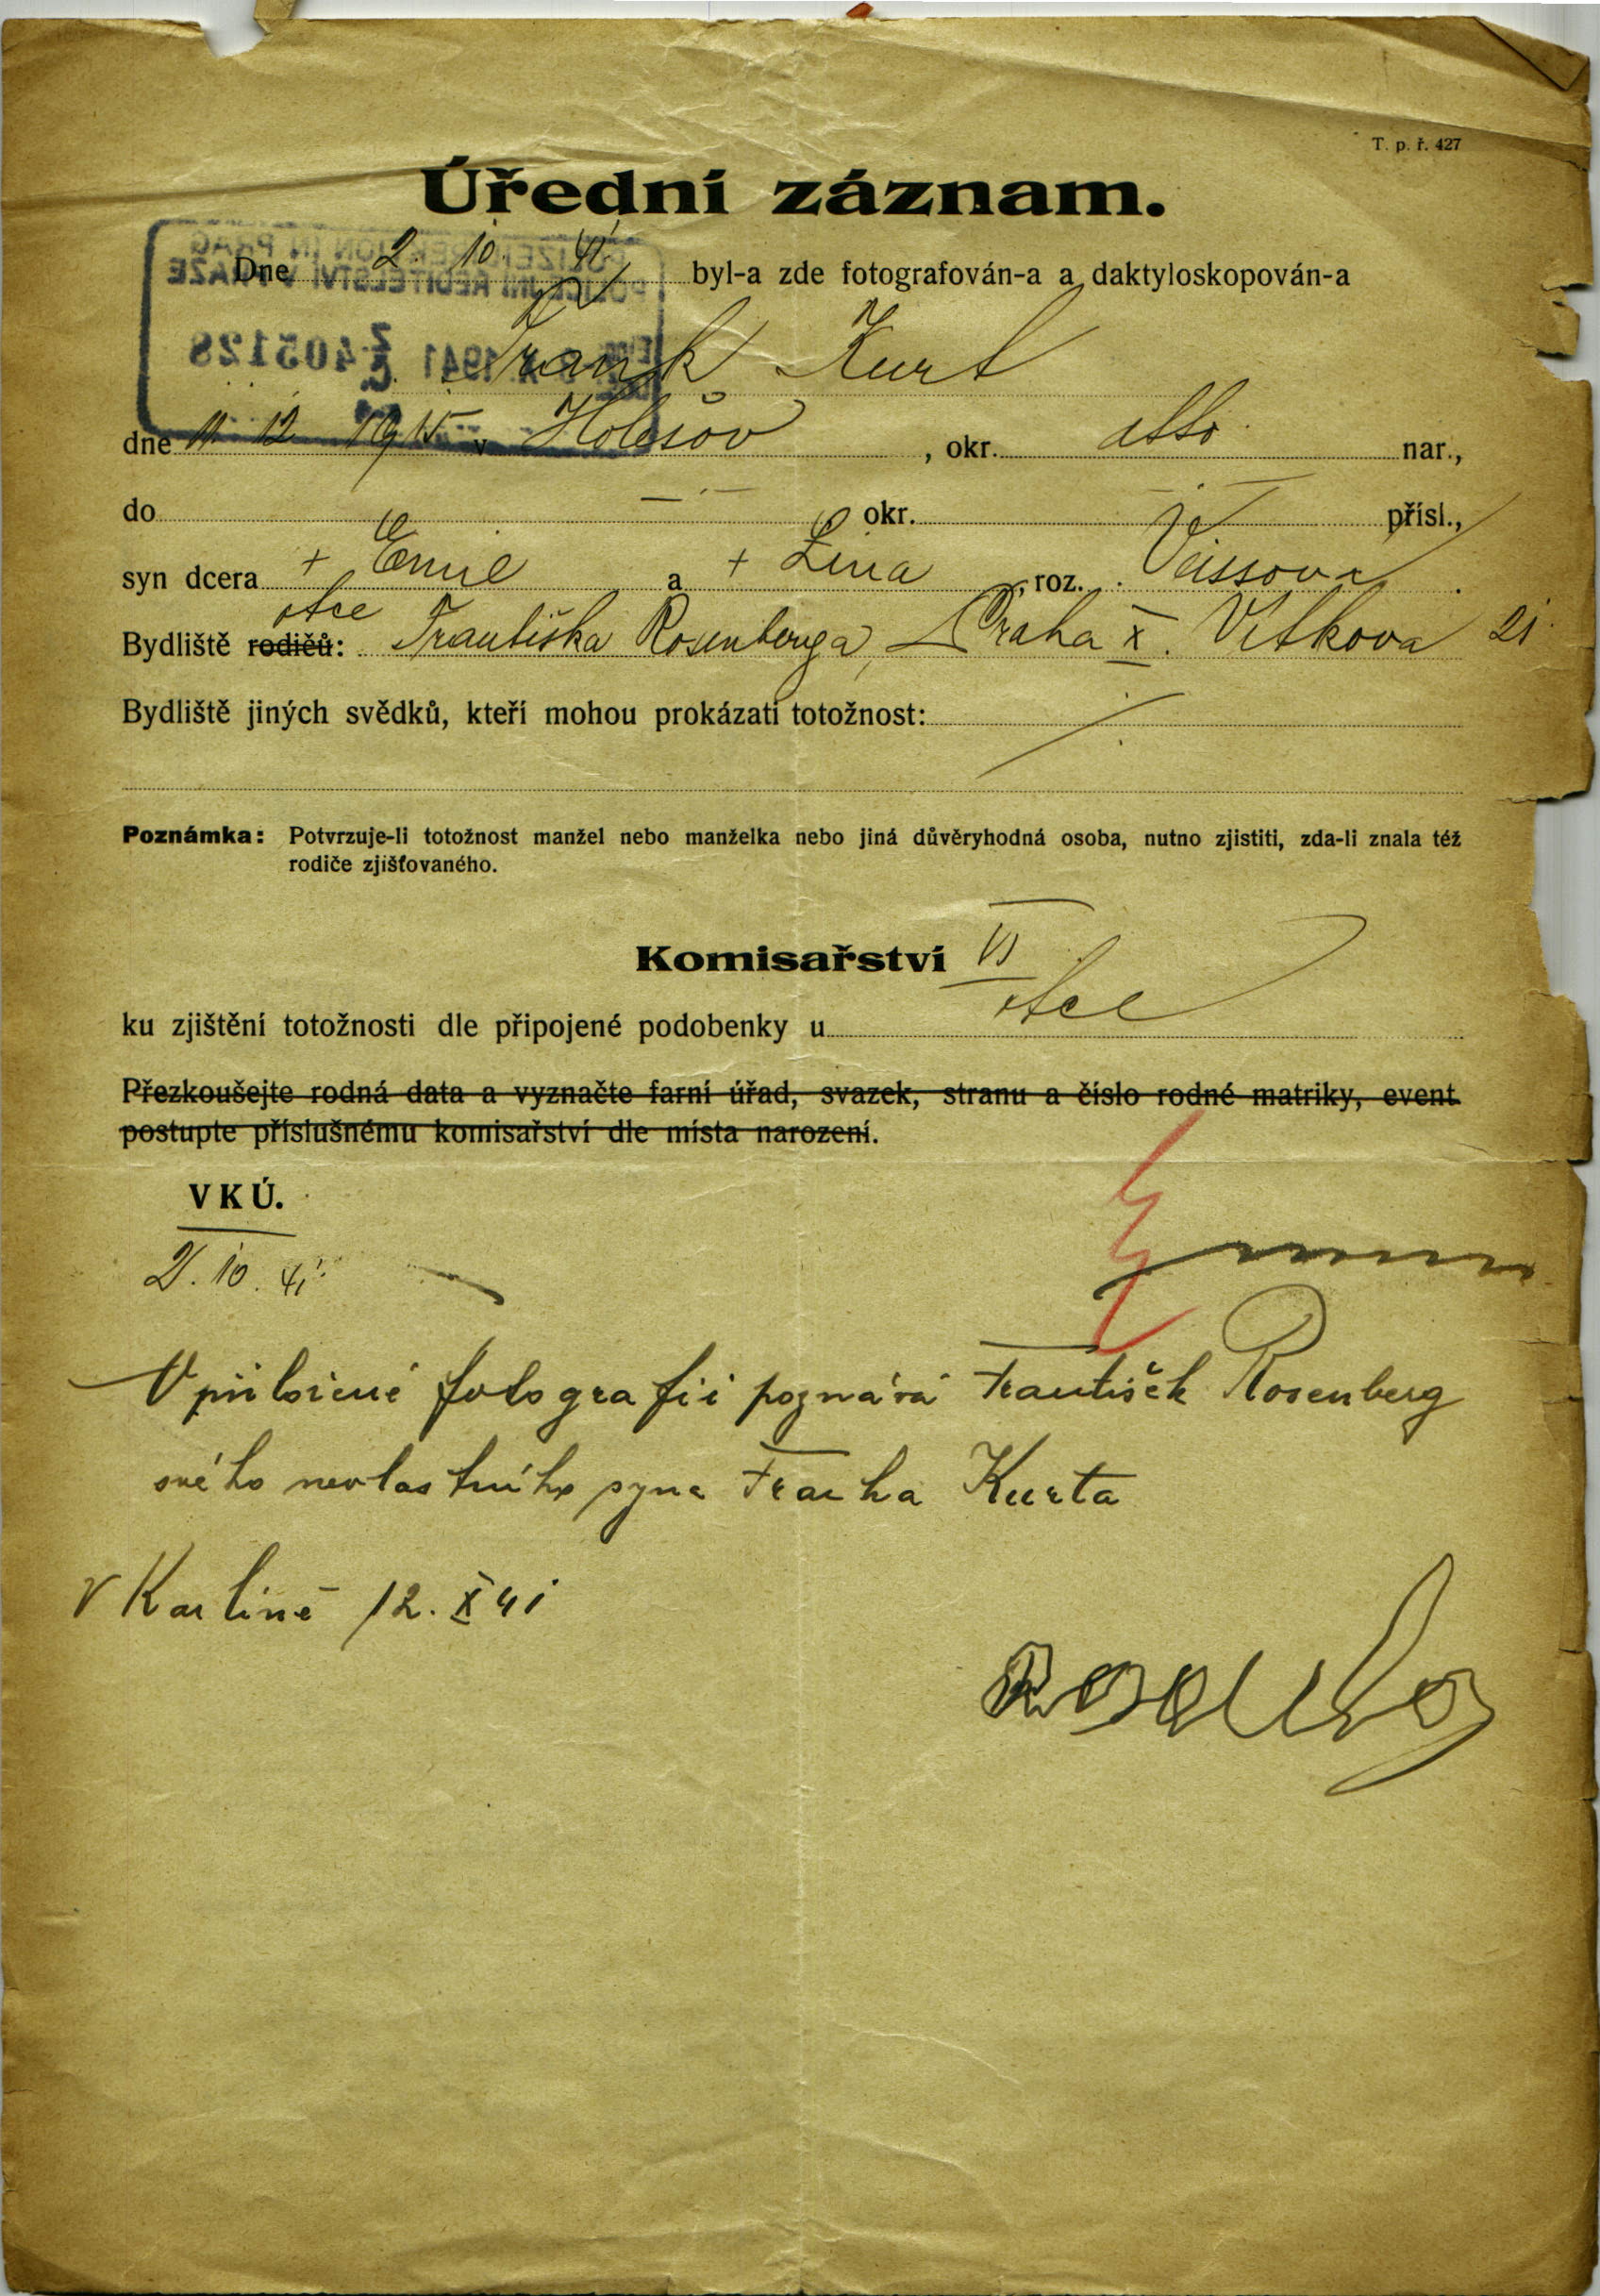 T. p. ř. 427
Úřední záznam.
Dne 2. 10. 41 byl-a zde fotografován-a a daktyloskopován-a
Frank Kurt
dne 11. 12. 1915 v Holešov, okr. nar.,
do — okr. — přísl.,
syn dcera + Emil a + Lina, roz. Veissova.
otce
Bydliště rodičů: Františka Rosenberga, Praha X. Vítkova 21
Bydliště jiných svědků, kteří mohou prokázati totožnost:
Poznámka: Potvrzuje-li totožnost manžel nebo manželka nebo jiná důvěryhodná osoba, nutno zjistiti, zda-li znala též
rodiče zjišťovaného.
Komisařství VI
ku zjištění totožnosti dle připojené podobenky u otce
Přezkoušejte rodná data a vyznačte farní úřad, svazek, stranu a číslo rodné matriky, event.
postupte příslušnému komisařství dle místa narození.
VKÚ.
2. 10. 41
V přiložené fotografii poznává František Rosenberg
svého nevlastního syna Franka Kurta
V Karlíně 12. X 41